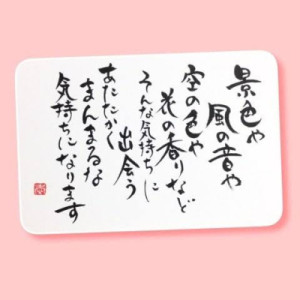 景色や
風の音や
空の色や
花の香りなど
そんな気持ちに
出会う
あたたかく
まんまるな
気持ちになります